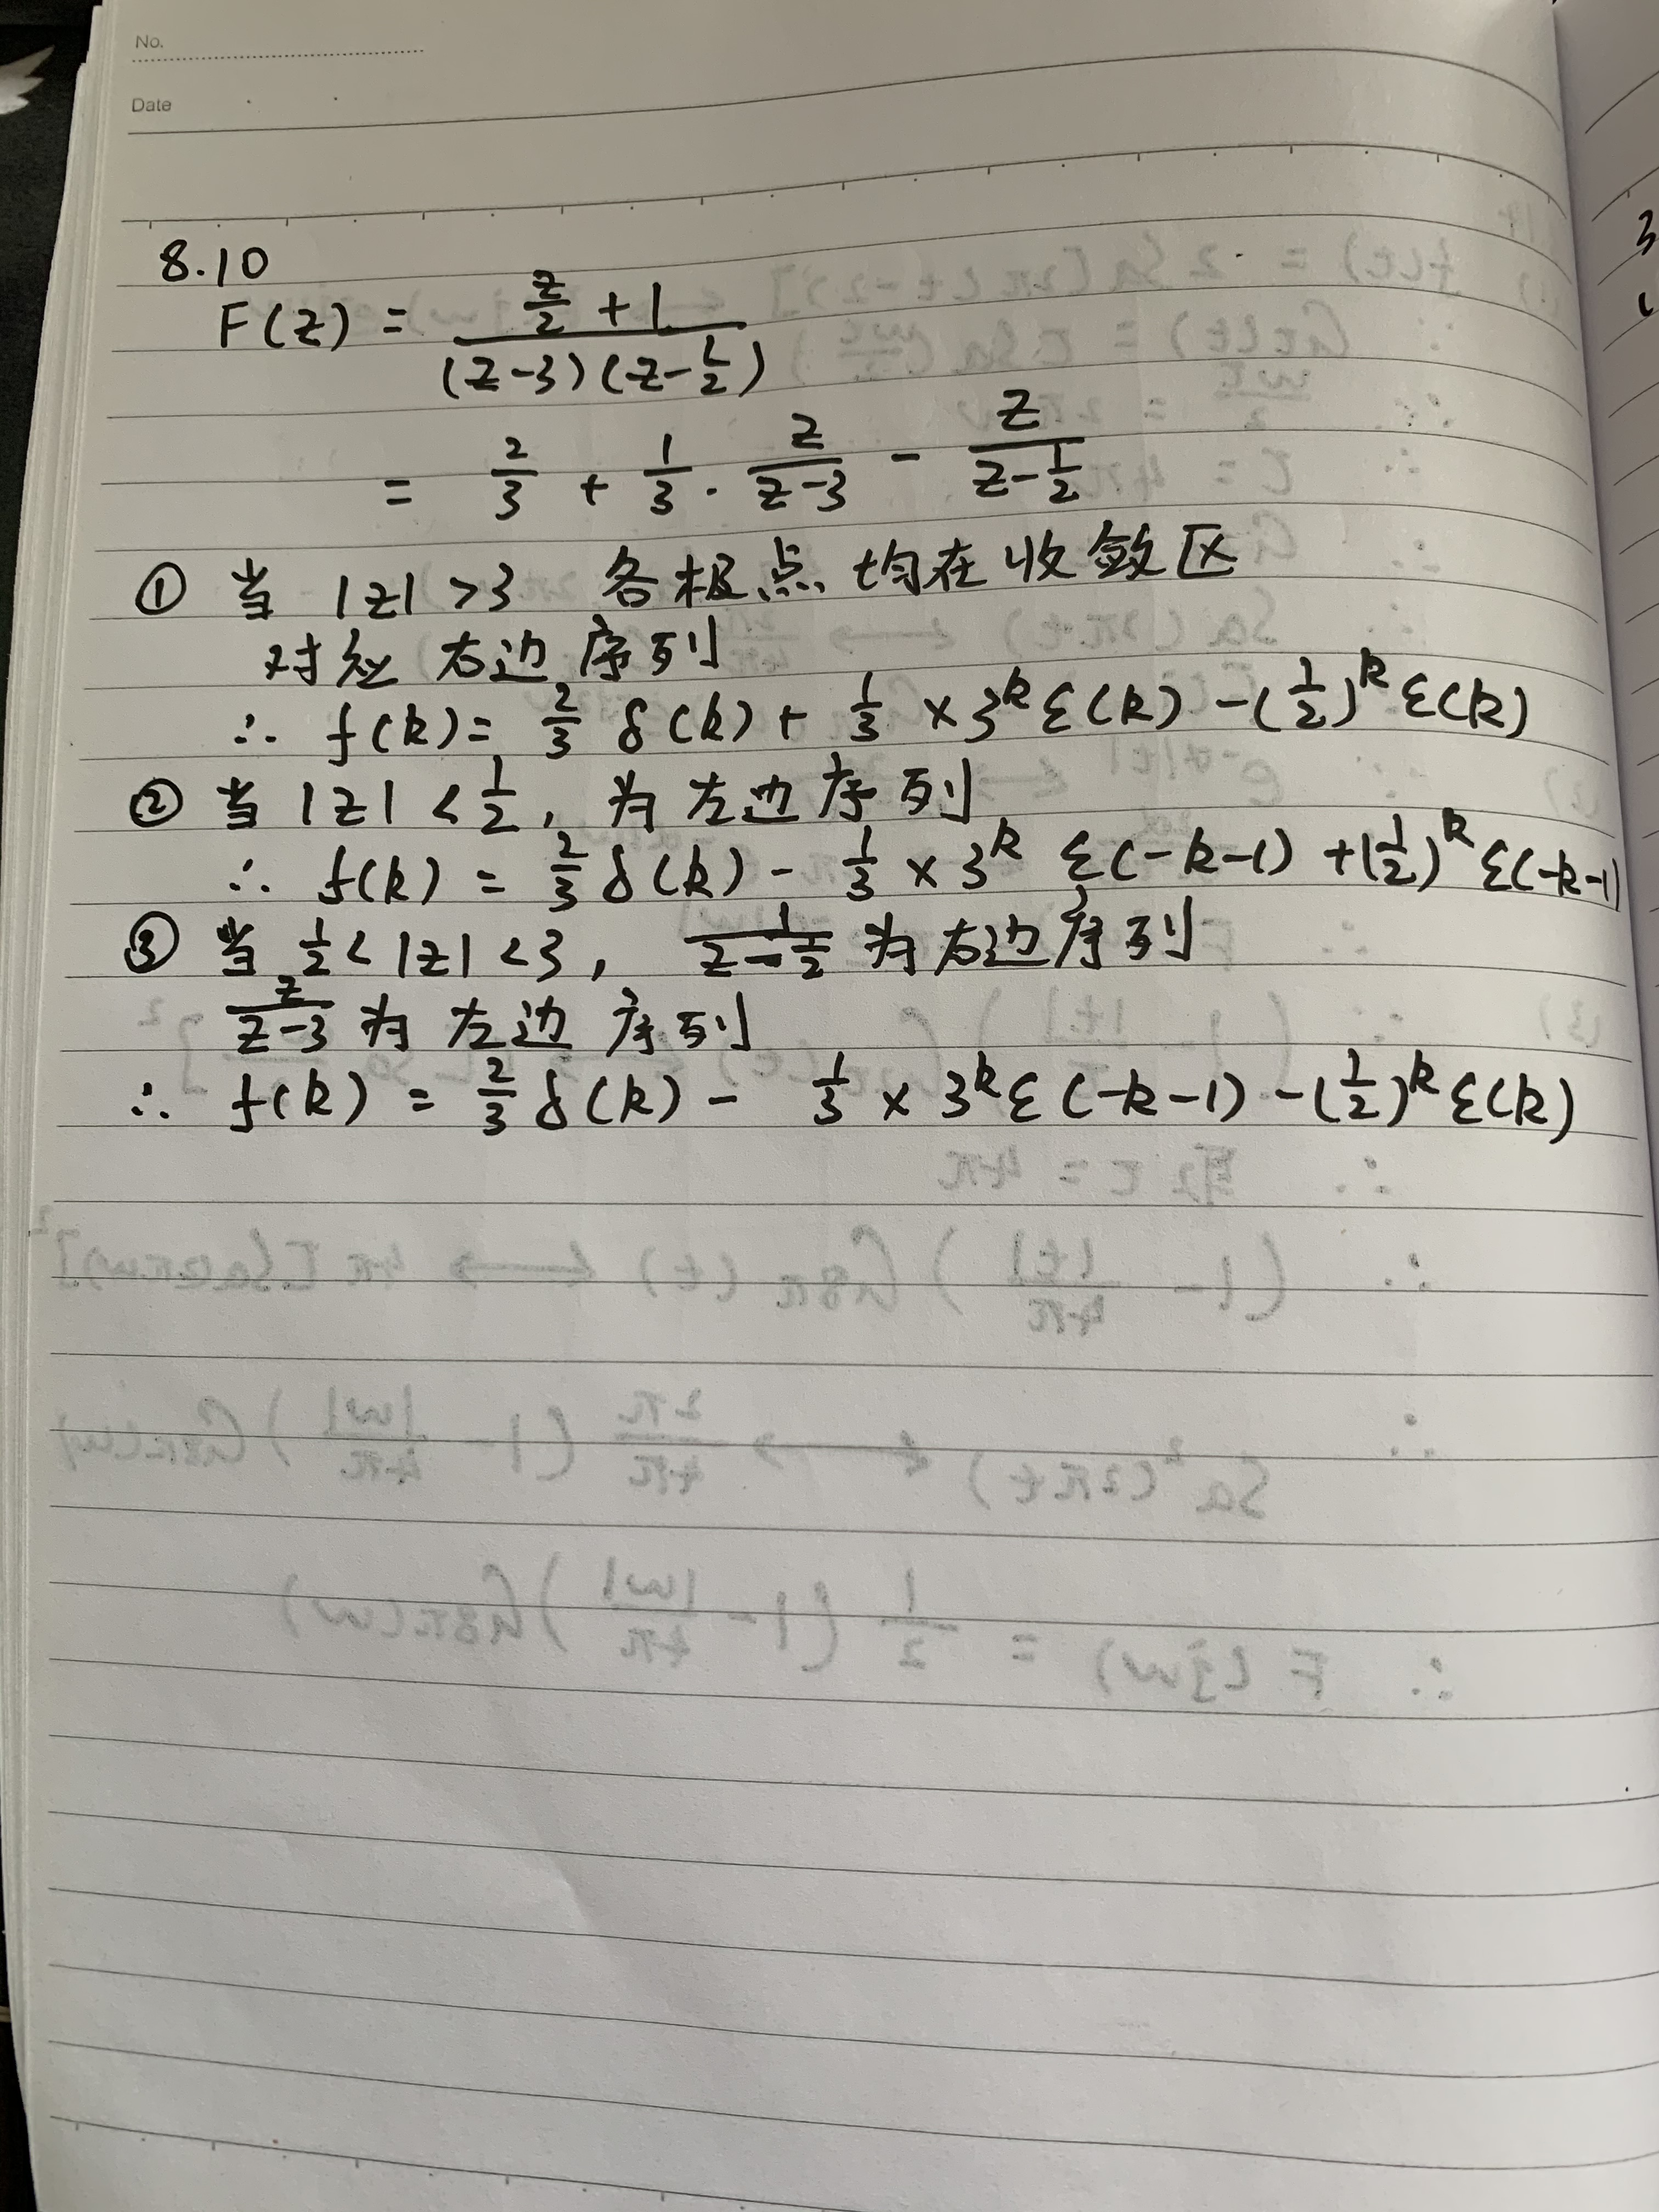 No.
Date
8.10
F(z) = (z/2 + 1) / ((z-3)(z-1/2))
= 2/3 + 1/3 · z/(z-3) - z/(z-1/2)
① 当 |z| >3 各极点均在收敛区
对应右边序列
∴ f(k) = 2/3 δ(k) + 1/3 × 3^k ε(k) - (1/2)^k ε(k)
② 当 |z| < 1/2, 为左边序列
∴ f(k) = 2/3 δ(k) - 1/3 × 3^k ε(-k-1) + (1/2)^k ε(-k-1)
③ 当 1/2 < |z| < 3, 1/(z-1/2) 为右边序列
z/(z-3) 为左边序列
∴ f(k) = 2/3 δ(k) - 1/3 × 3^k ε(-k-1) - (1/2)^k ε(k)